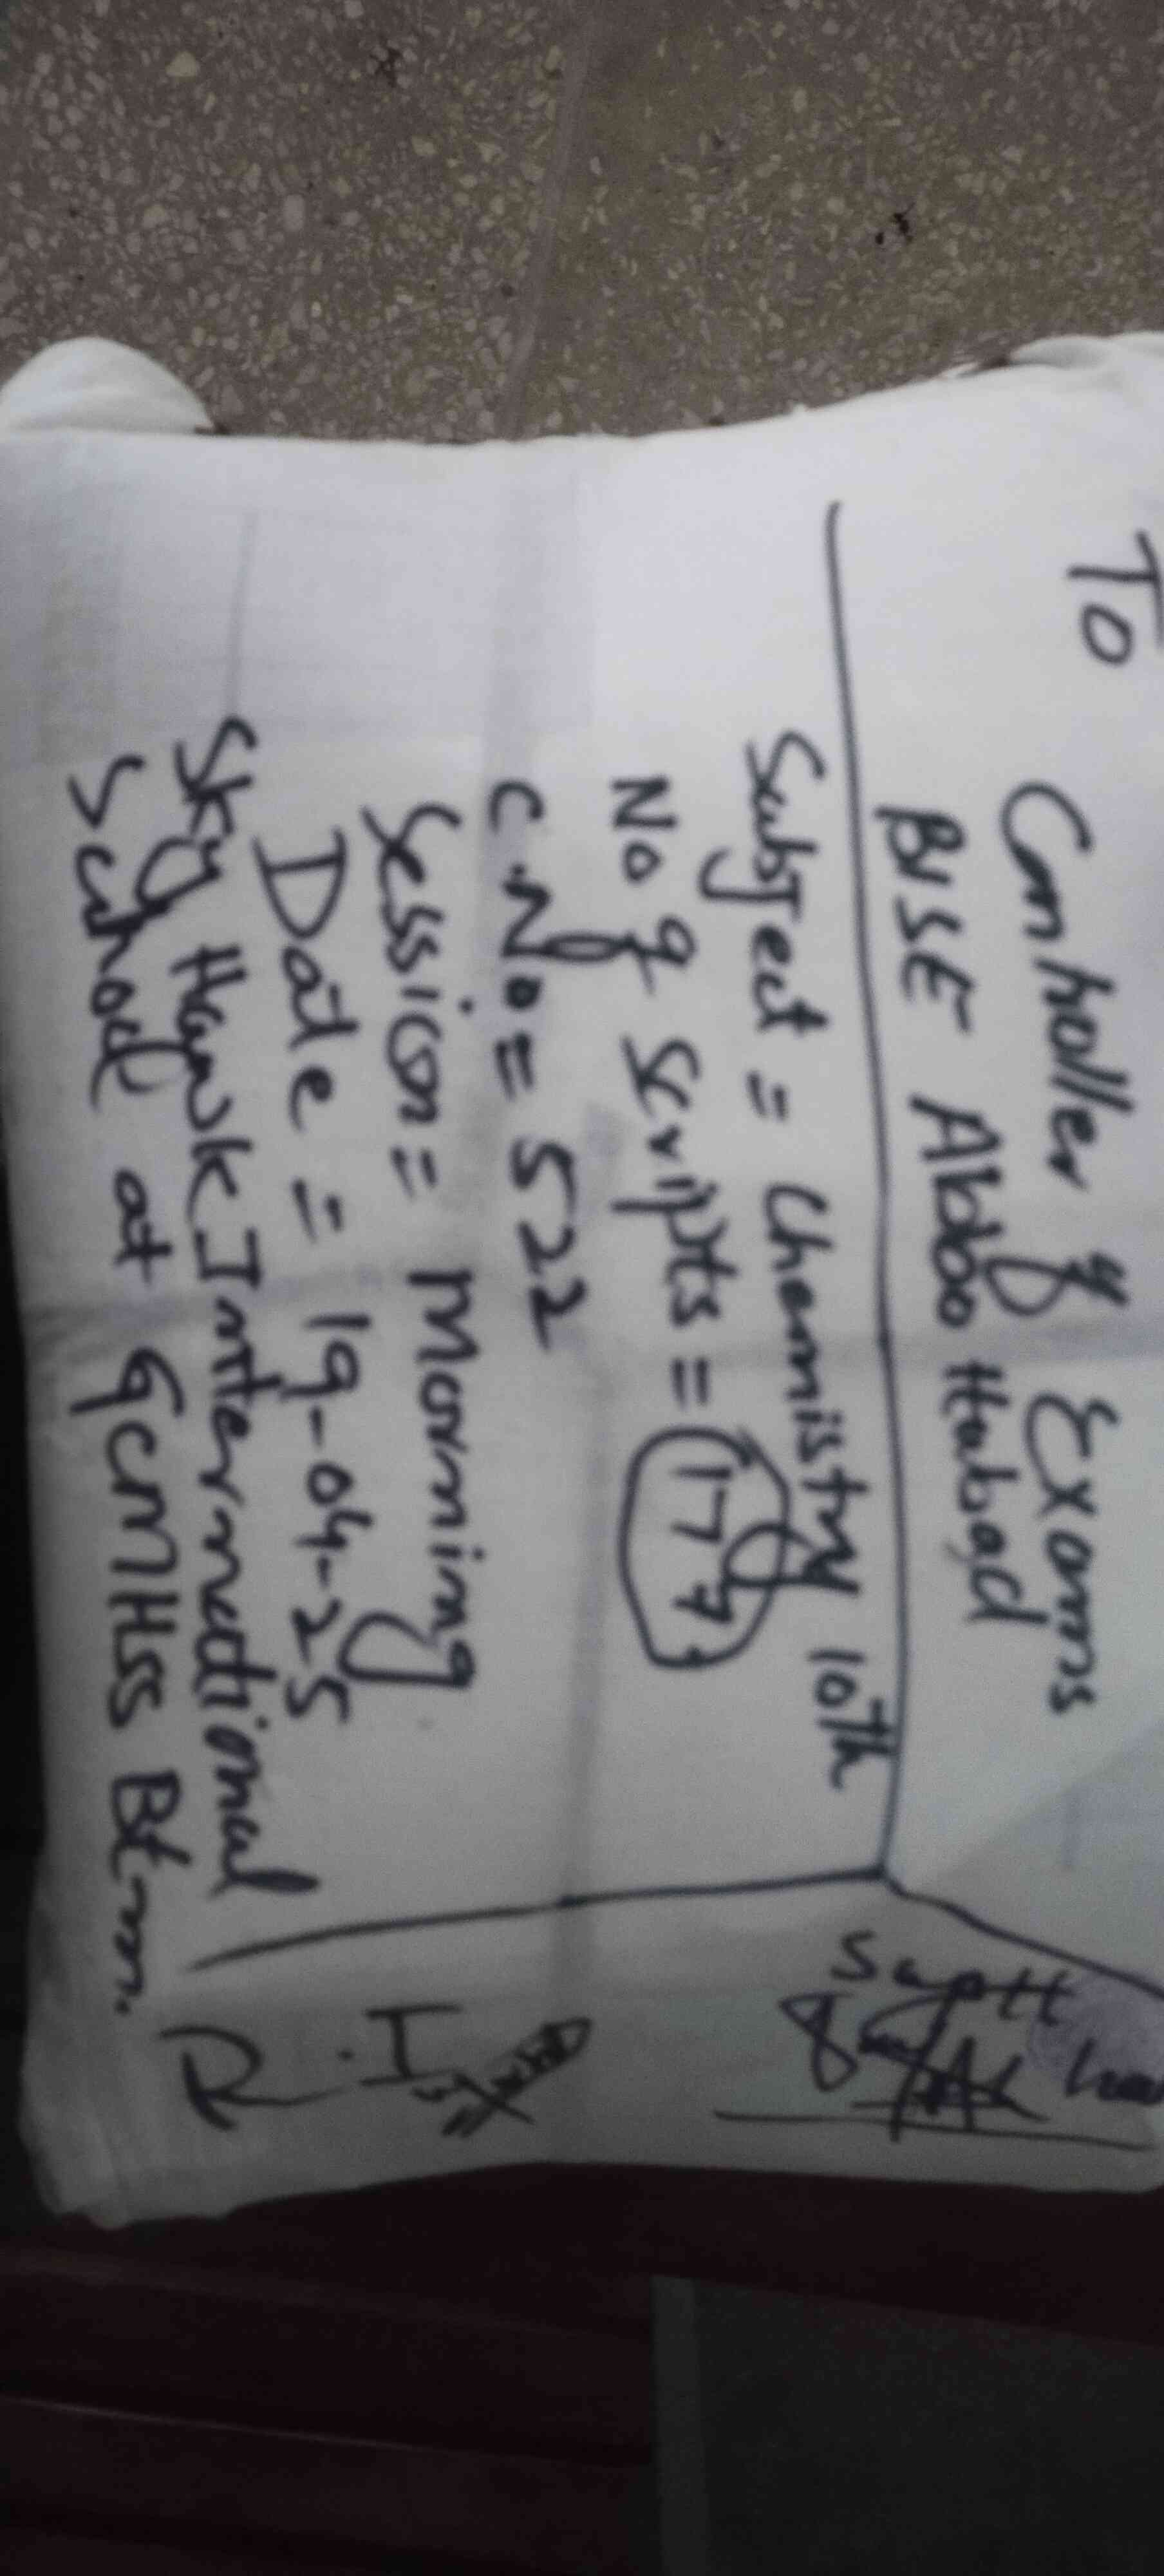 To
Controller of Exams
BISE Abbo ttabad
Subject = Chemistry 10th
No of Scripts = 177
C.No = 522
Session = Morning
Date = 19-04-25
Sky Hawk International
School at GCMHSS Btm.
Suptt
R.I